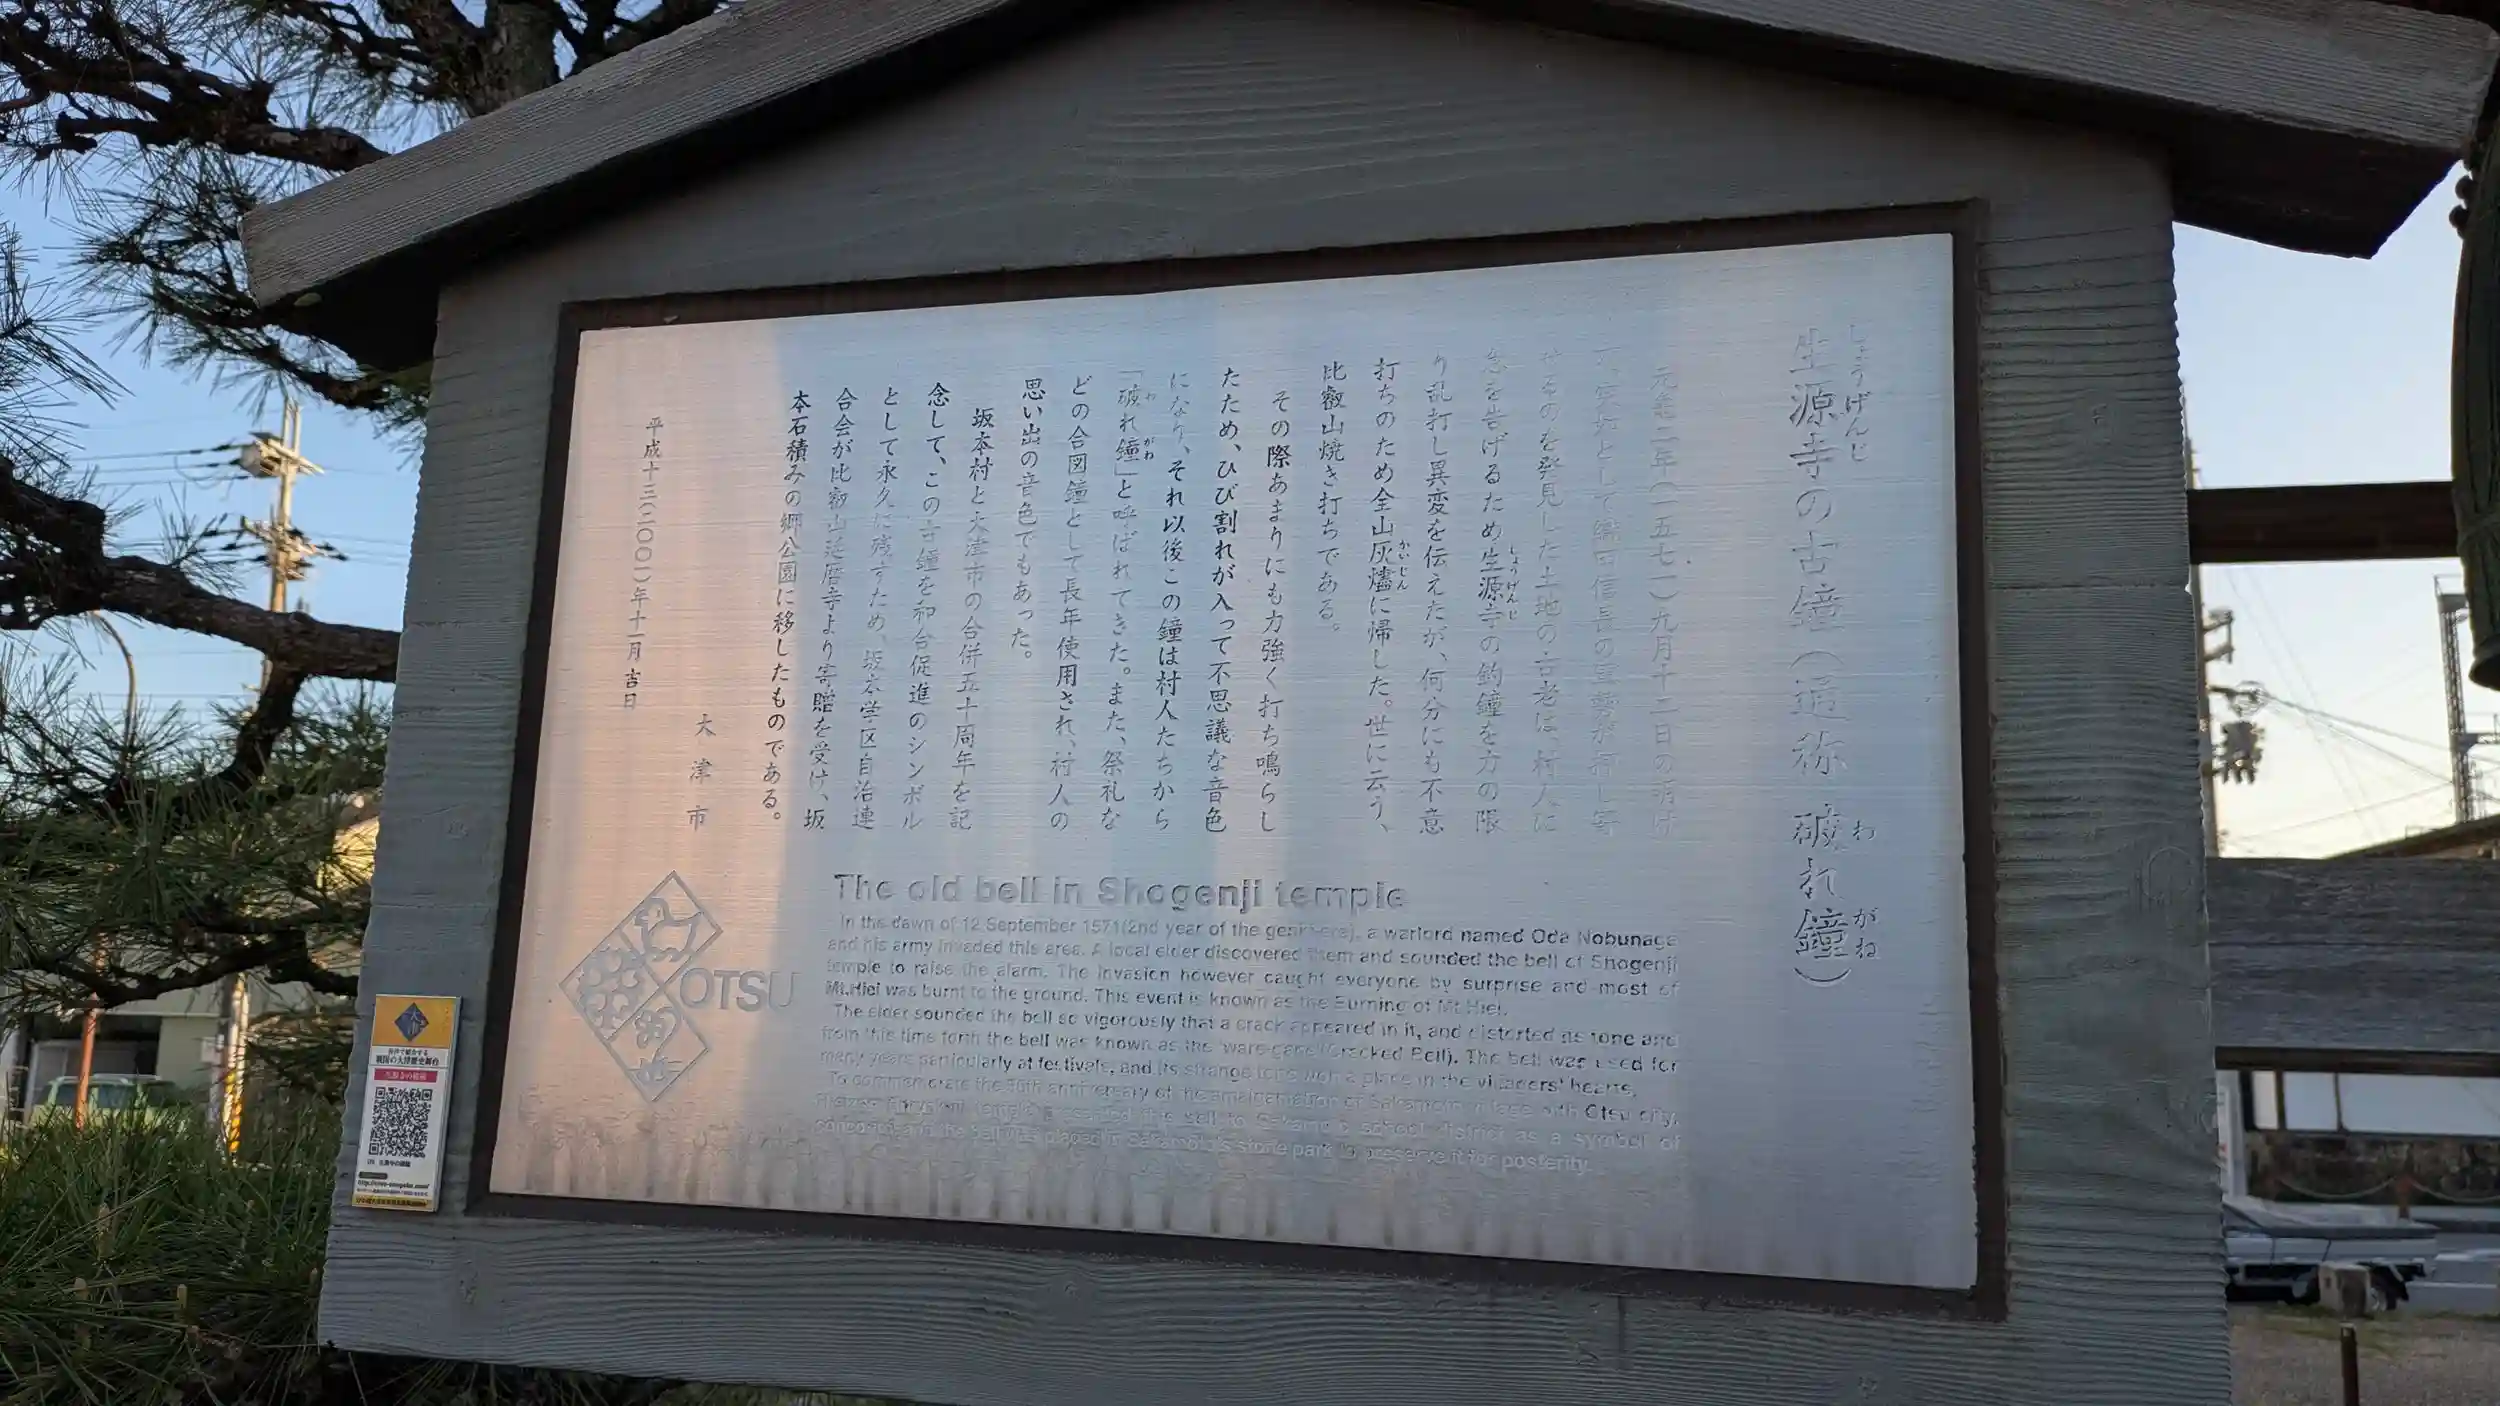 生源寺の古鐘(通称 破れ鐘)
しょうげんじ
わ
がね
元亀二年(一五七一)九月十二日の明け
突如として織田信長の軍勢が押し寄
せるのを発見した土地の古老は、村人に
急を告げるため生源寺の釣鐘を力の限
しょうげんじ
り乱打し異変を伝えたが、何分にも不意
打ちのため全山灰燼に帰した。世に云う、
かいじん
比叡山焼き打ちである。
その際あまりにも力強く打ち鳴らし
たため、ひび割れが入って不思議な音色
になり、それ以後この鐘は村人たちから
「破れ鐘」と呼ばれてきた。また、祭礼な
わ
がね
どの合図鐘として長年使用され、村人の
思い出の音色でもあった。
坂本村と大津市の合併五十周年を記
念して、この古鐘を和合促進のシンボル
として永久に残すため、坂本学区自治連
合会が比叡山延暦寺より寄贈を受け、坂
本石積みの郷公園に移したものである。
大津市
平成十三(二〇〇一)年十一月吉日
The old bell in Shogenji temple
In the dawn of 12 September 1571(2nd year of the genki era), a warlord named Oda Nobunaga
and his army invaded this area. A local elder discovered them and sounded the bell of Shogenji
temple to raise the alarm. The invasion however caught everyone by surprise and most of
Mt.Hiei was burnt to the ground. This event is known as the Burning of Mt.Hiei.
The elder sounded the bell so vigorously that a crack appeared in it, and distorted its tone and
from this time forth the bell was known as the 'ware-gane'(Cracked Bell). The bell was used for
many years particularly at festivals, and its strange tone won a place in the villagers' hearts.
To commemorate the 50th anniversary of the amalgamation of Sakamoto village with Otsu city,
Hieizan Enryakuji temple presented this bell to Sakamoto school district as a symbol of
concord and the bell was placed in Sakamoto's stone park to preserve it for posterity.
OTSU
大津
戦国の大津歴史舞台